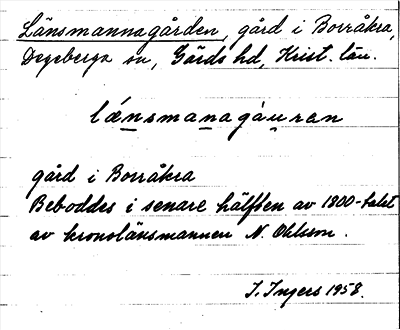 Länsmannagården, gård i Borråkra,
Degeberga sn, Gärds hd, Krist. län.
lǽnsmanagȧu̯ran
gård i Borråkra
Beboddes i senare hälften av 1800-talet
av kronolänsmannen N. Ohlsson.
I. Ingers 1958.